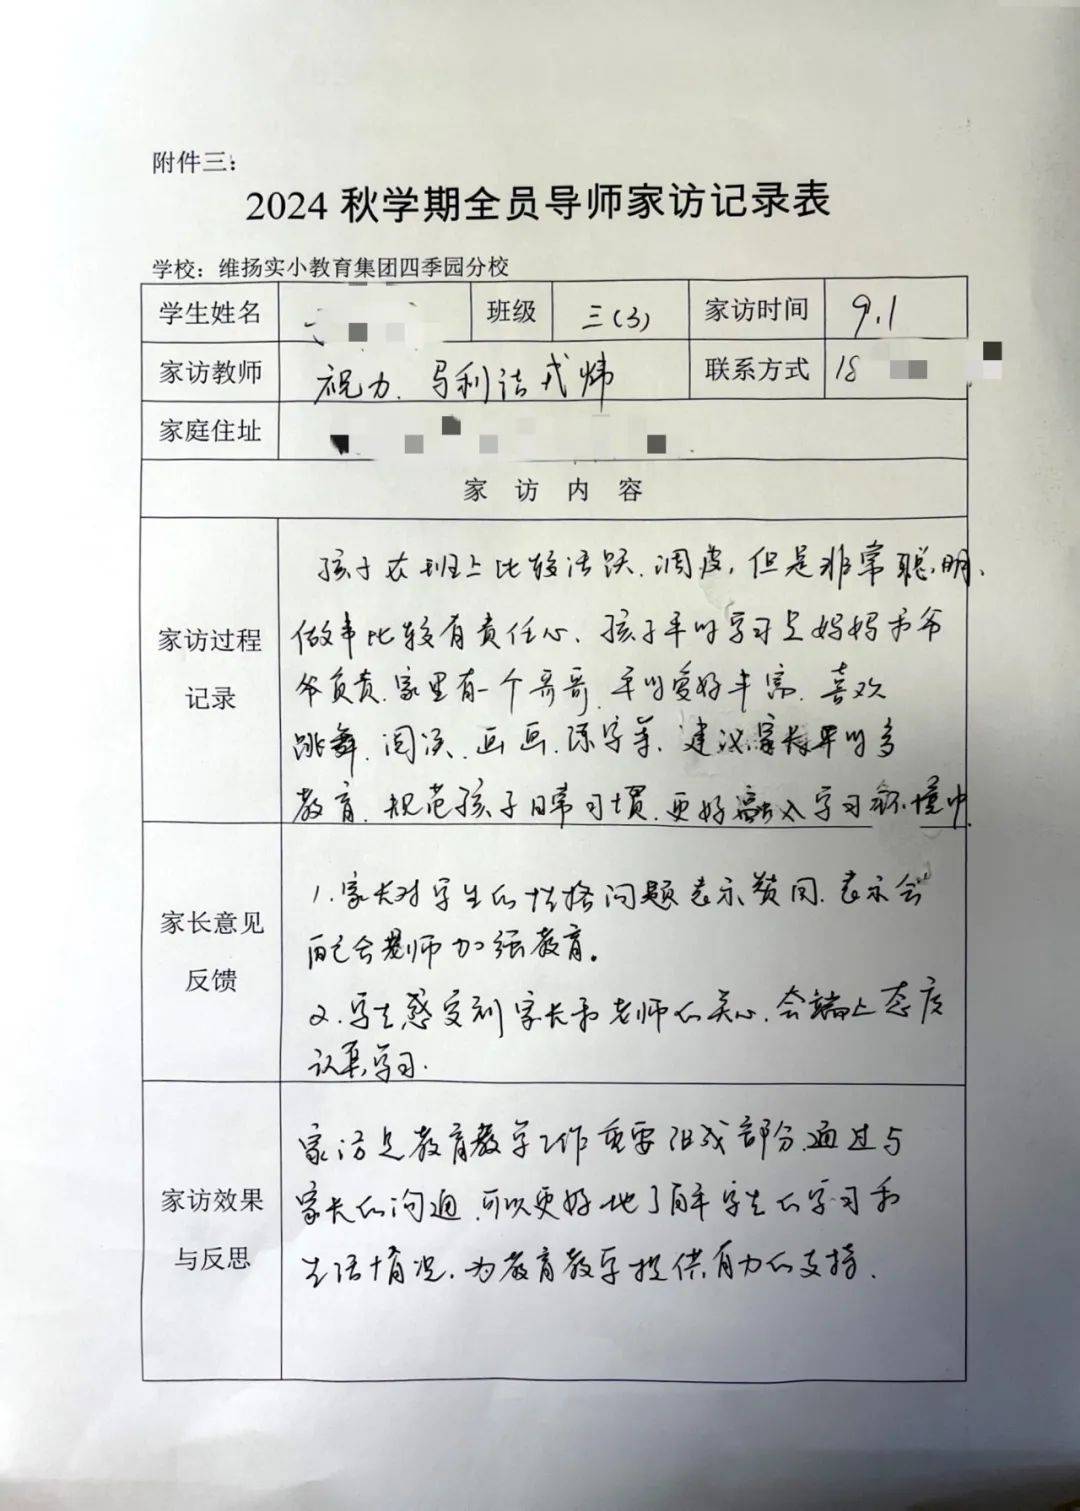 附件三：
2024 秋学期全员导师家访记录表
学校：维扬实小教育集团四季园分校
学生姓名 班级 三(3) 家访时间 9.1
家访教师 祝力、马利洁 戎炜 联系方式 18
家庭住址
家 访 内 容
家访过程
记录
孩子在班上比较活跃、调皮，但是非常聪明、
做事比较有责任心、孩子平时学习是妈妈和爷
爷负责、家里有一个哥哥、平时爱好丰富、喜欢
跳舞、阅读、画画、练字等、建议家长平时多
教育、规范孩子日常习惯、更好融入学习环境中
家长意见
反馈
1. 家长对学生的性格问题表示赞同、表示会
配合老师加强教育。
2. 学生感受到家长和老师的关心、会端正态度
认真学习.
家访效果
与反思
家访是教育教学工作重要组成部分、通过与
家长的沟通、可以更好地了解学生的学习和
生活情况、为教育教学提供有力的支持.